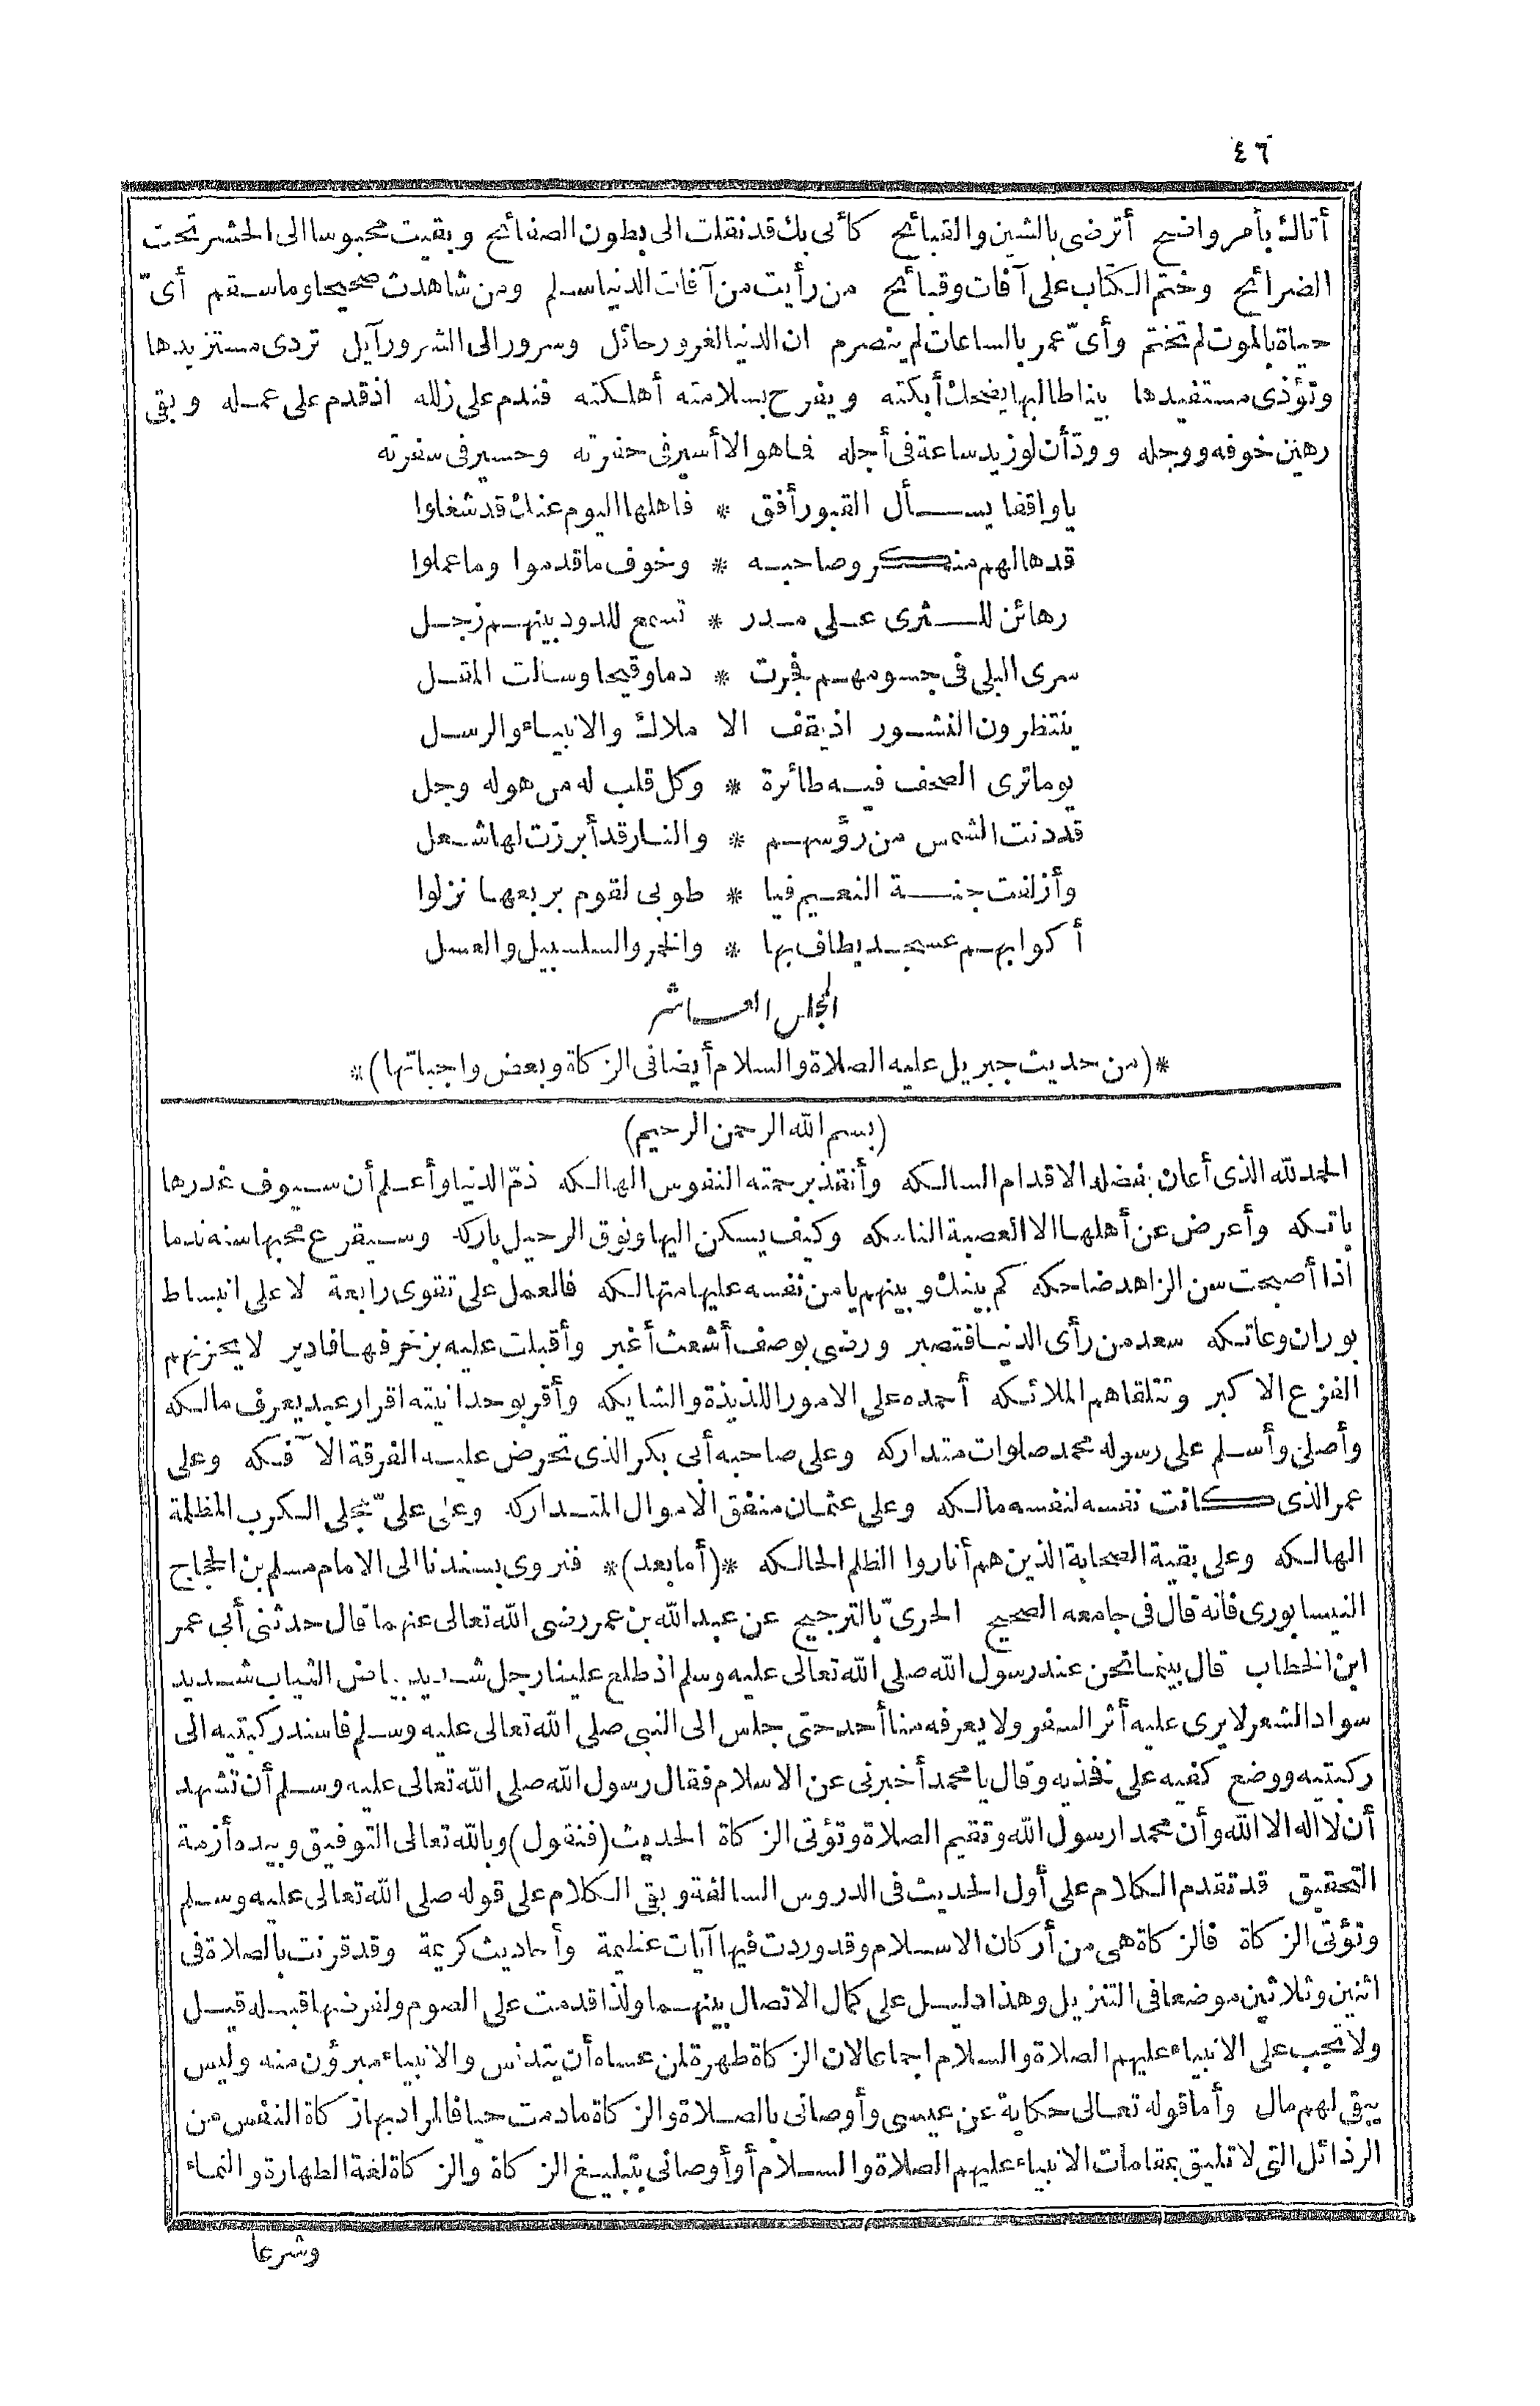 ٤٦
أتاك بأمر واضح أترضى بالشين والقبائح كأنى بك قد نقلت الى بطون الصفائح وبقيت محبوسا الى الحشر تحت
الضرائح وختم الكتاب على آفات وقبائح من رأيت من آفات الدنيا سلم ومن شاهدت صحيحا وما سقم أىّ
حياة بالموت لم تختم وأىّ عمر بالساعات لم ينصرم ان الدنيا لغرور حائل وسرور الى الشرور آيل تردى مستزيدها
وتؤذى مستفيدها بينا طالبها يضحك أبكته ويفرح بسلامته أهلكته فندم على زلله اذ قدم على عمله وبقى
رهين خوفه ووجله وودّ أن لو زيد ساعة فى أجله فما هو الا أسير فى حفرته وحسير فى سفرته
يا واقفا يسأل القبور أفق * فاهلها اليوم عنك قد شغلوا
قد هالهم منكر وصاحبه * وخوف ما قدموا وما عملوا
رهائن للثرى على مدر * تسمع للدود بينهم زجل
سرى البلى فى جسومهم فجرت * دما وقيحا وسالت المقل
ينتظرون النشور اذ يقف الا ملاك والانبياء والرسل
يوما ترى الصحف فيه طائرة * وكل قلب له من هوله وجل
قد دنت الشمس من رؤسهم * والنار قد أبرزت لها شعل
وأزلفت جنة النعيم فيا * طوبى لقوم بربعها نزلوا
أكوابهم عسجد يطاف بها * والخمر والسلسبيل والعسل
المجلس العاشر
*(من حديث جبريل عليه الصلاة والسلام أيضا فى الزكاة وبعض واجباتها)*
(بسم الله الرحمن الرحيم)
الحمد لله الذى أعان بفضله الاقدام السالكه وأنقذ برحمته النفوس الهالكه ذمّ الدنيا وأعلم أن سيوف غدرها
باتكه وأعرض عن أهلها الا العصبة الناسكه وكيف يسكن اليها ونوق الرحيل باركه وسيقرع محبها سنه ندما
اذا أصبحت سن الزاهد ضاحكه كم بينك وبينهم يا من نفسه عليها متهالكه فالعمل على تقوى رابعة لا على انبساط
بوران وعاتكه سعد من رأى الدنيا فتصبر ورضى بوصف أشعث أغبر وأقبلت عليه بزخرفها فادبر لا يحزنهم
الفزع الاكبر وتتلقاهم الملائكه أحمده على الامور اللذيذة والشايكه وأقر بوحدانيته اقرار عبد يعرف مالكه
وأصلى وأسلم على رسوله محمد صلوات متداركه وعلى صاحبه أبى بكر الذى تحرض عليه الفرقة الآفكه وعلى
عمر الذى كانت نفسه لنفسه مالكه وعلى عثمان منفق الاموال المتداركه وعلى علىّ مجلى الكرب المظلمة
الهالكه وعلى بقية الصحابة الذين هم أناروا الظلم الحالكه *(أما بعد)* فنروى بسندنا الى الامام مسلم بن الحجاج
النيسابورى فانه قال فى جامعه الصحيح الحرىّ بالترجيح عن عبد الله بن عمر رضى الله تعالى عنهما قال حدثنى أبى عمر
ابن الخطاب قال بينما نحن عند رسول الله صلى الله تعالى عليه وسلم اذ طلع علينا رجل شديد بياض الثياب شديد
سواد الشعر لا يرى عليه أثر السفر ولا يعرفه منا أحد حتى جلس الى النبى صلى الله تعالى عليه وسلم فاسند ركبتيه الى
ركبتيه ووضع كفيه على فخذيه وقال يا محمد أخبرنى عن الاسلام فقال رسول الله صلى الله تعالى عليه وسلم أن تشهد
أن لا اله الا الله وأن محمدا رسول الله وتقيم الصلاة وتؤتى الزكاة الحديث (فنقول) وبالله تعالى التوفيق وبيده أزمة
التحقيق قد تقدم الكلام على أول الحديث فى الدروس السالفة وبقى الكلام على قوله صلى الله تعالى عليه وسلم
وتؤتى الزكاة فالزكاة هى من أركان الاسلام وقد وردت فيها آيات عظيمة وأحاديث كريمة وقد قرنت بالصلاة فى
اثنين وثلاثين موضعا فى التنزيل وهذا دليل على كمال الاتصال بينهما ولذا قدمت على الصوم ولفرضها قبله قيل
ولا تجب على الانبياء عليهم الصلاة والسلام اجماعا لان الزكاة طهرة لمن عساه أن يتدنس والانبياء مبرؤن منه وليس
يبقى لهم مال وأما قوله تعالى حكاية عن عيسى وأوصانى بالصلاة والزكاة ما دمت حيا فالمراد بها زكاة النفس من
الرذائل التى لا تليق بمقامات الانبياء عليهم الصلاة والسلام أو أوصانى بتبليغ الزكاة والزكاة لغة الطهارة والنماء
وشرعا